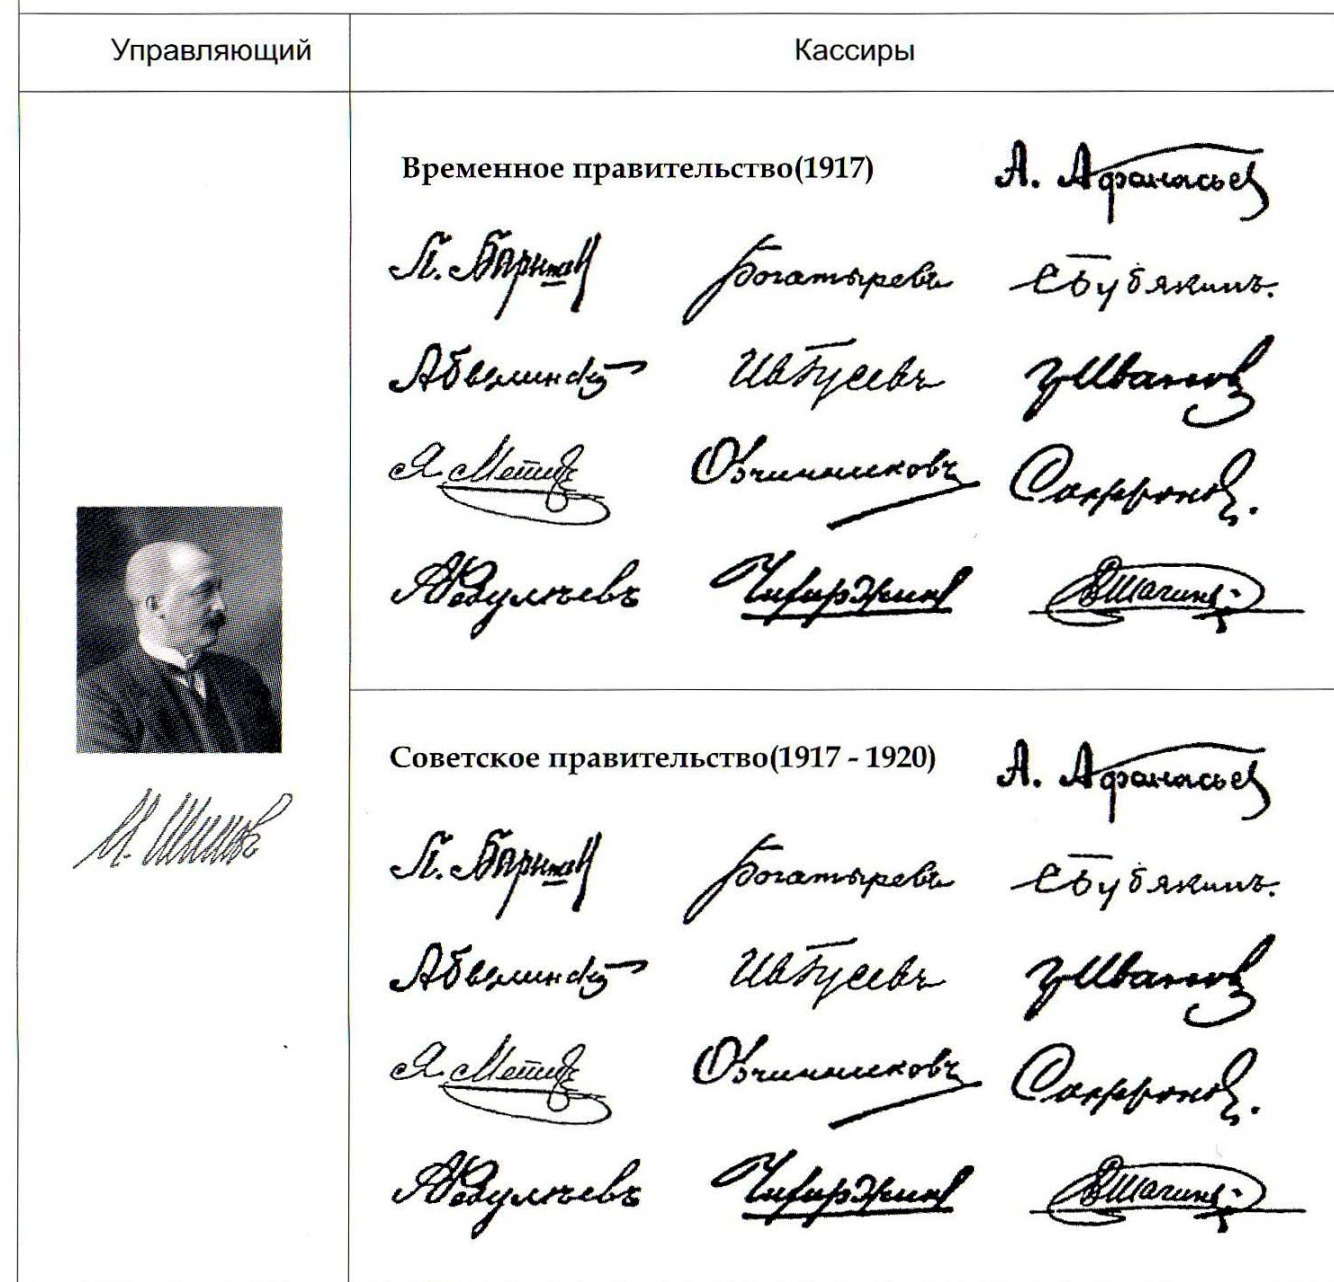 Управляющий Кассиры
Временное правительство(1917) А. Афанасьев
П. Барышев Богатыревъ СБубякинъ.
Абылинск ИвГусевъ ГИванов
Я. Метцъ Овчинниковъ Сафронов.
Чихиржин ВШагинъ
М. Шиповъ
Советское правительство(1917 - 1920) А. Афанасьев
П. Барышев Богатыревъ СБубякинъ.
ИвГусевъ ГИванов
Я. Метцъ Овчинниковъ Сафронов.
Чихиржин ВШагинъ